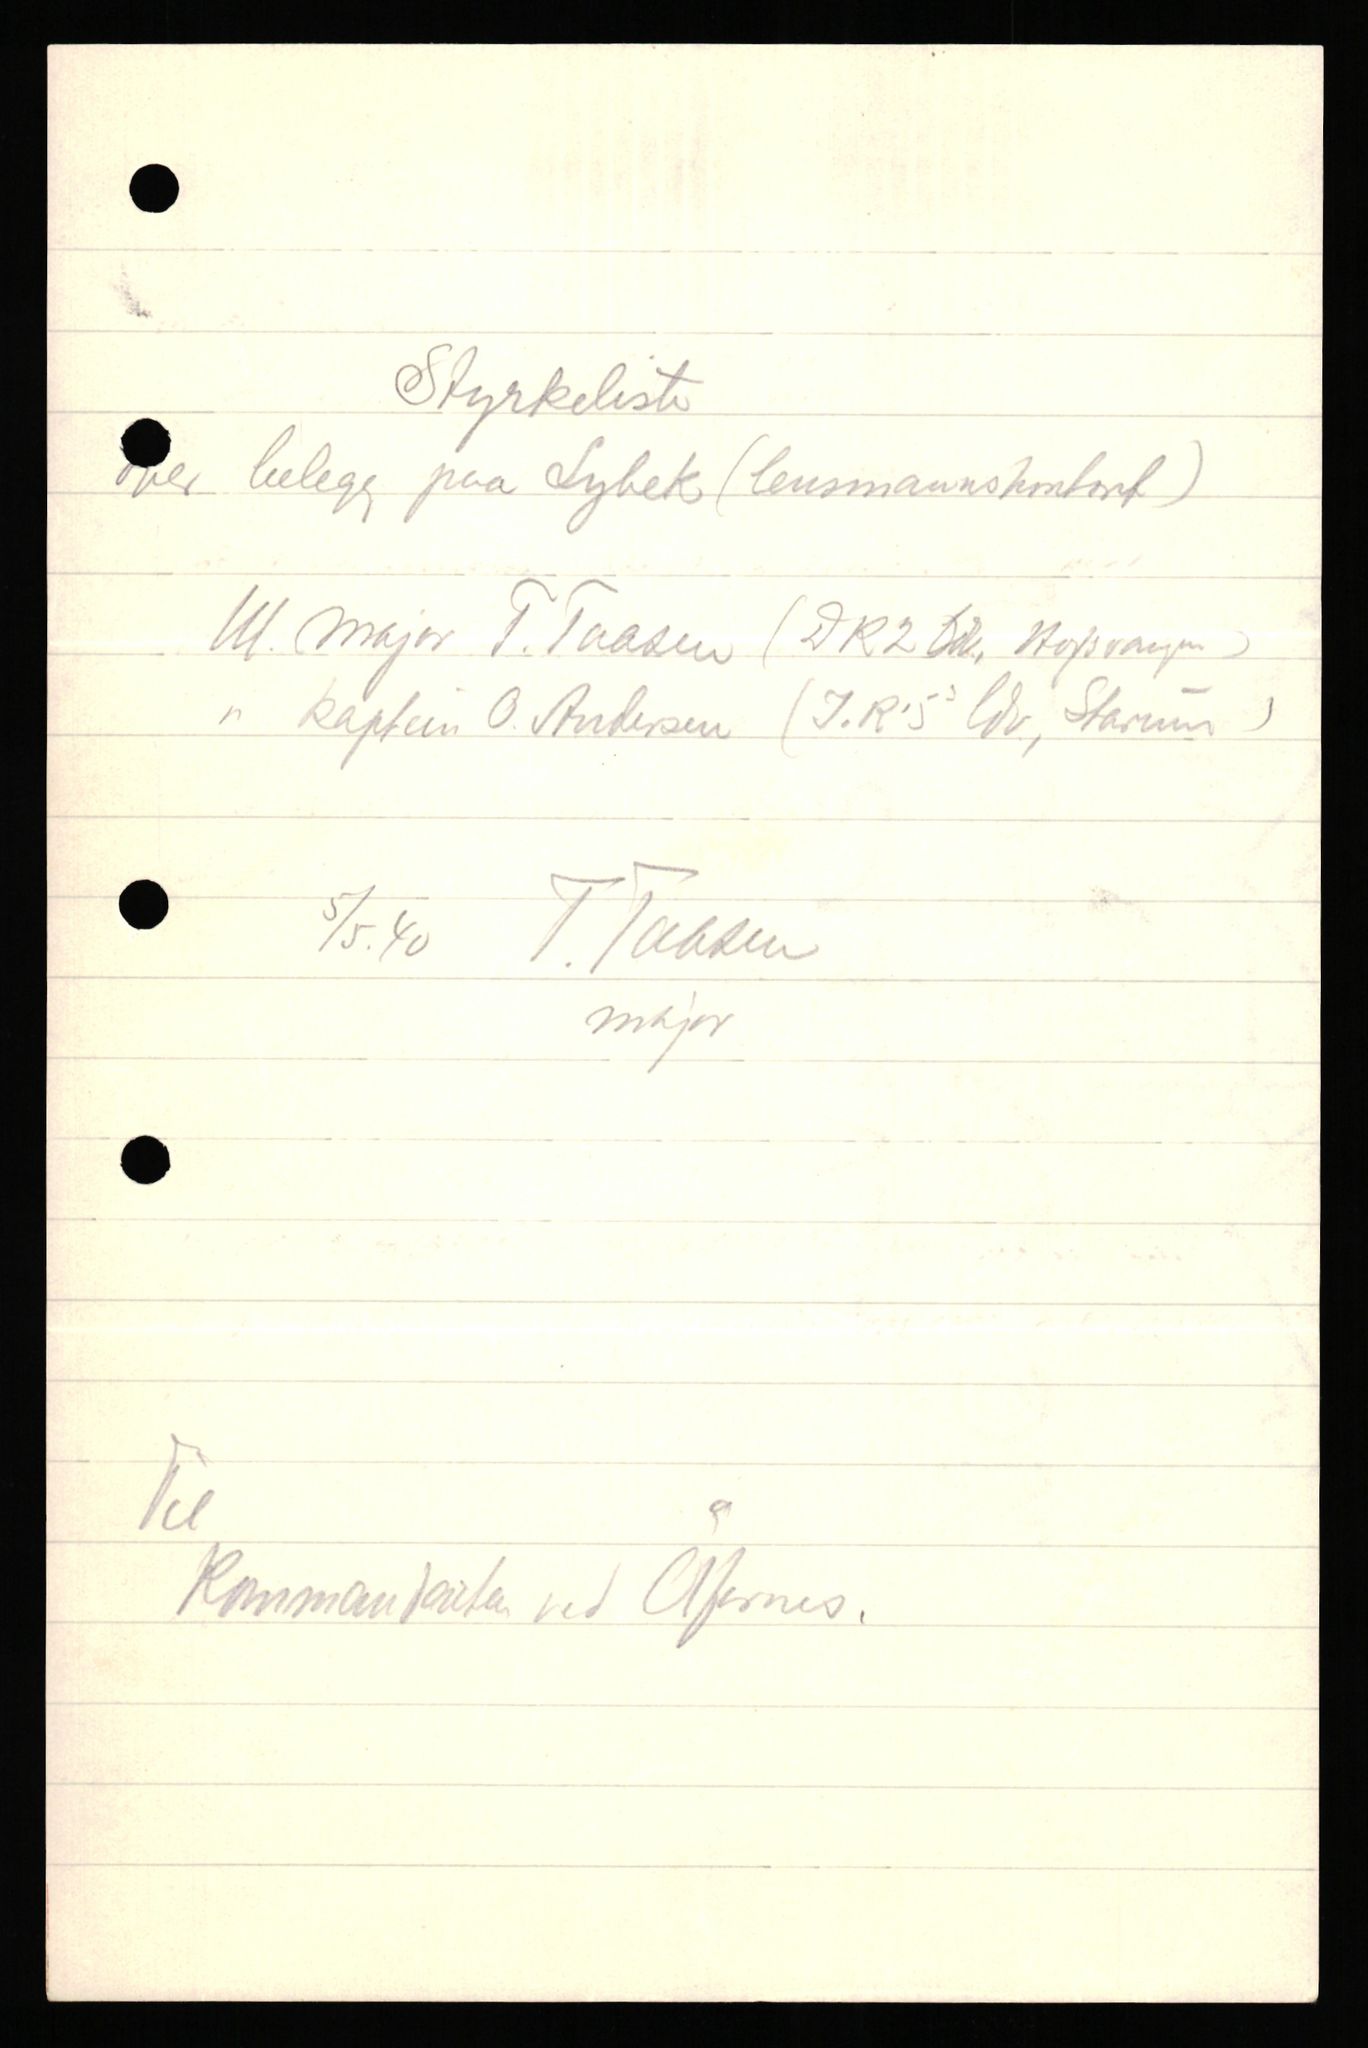 Styrkeliste
over belegg paa Lybek (lensmannskontoret)
major T. Taasen (DR2 Ldv., )
" kaptein O. Andersen (I.R. 5's ldv, Starum)
5/5.40 T. Taasen
major
Til
Kommandanten ved Åfarnes.